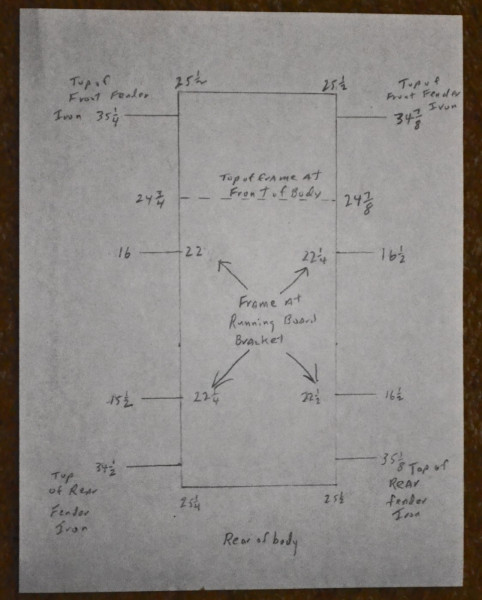 25 1/2 25 1/2
Top of
Front Fender
Iron 35 1/4
Top of
Front Fender
Iron
34 7/8
Top of Frame At
Front of Body
24 3/4 24 7/8
16 22 22 1/4 16 1/2
Frame At
Running Board
Bracket
15 1/2 22 1/4 22 1/2 16 1/2
34 1/2 35 1/8
Top
of Rear
Fender
Iron
Top of
Rear
fender
Iron
25 1/4 25 1/2
Rear of body